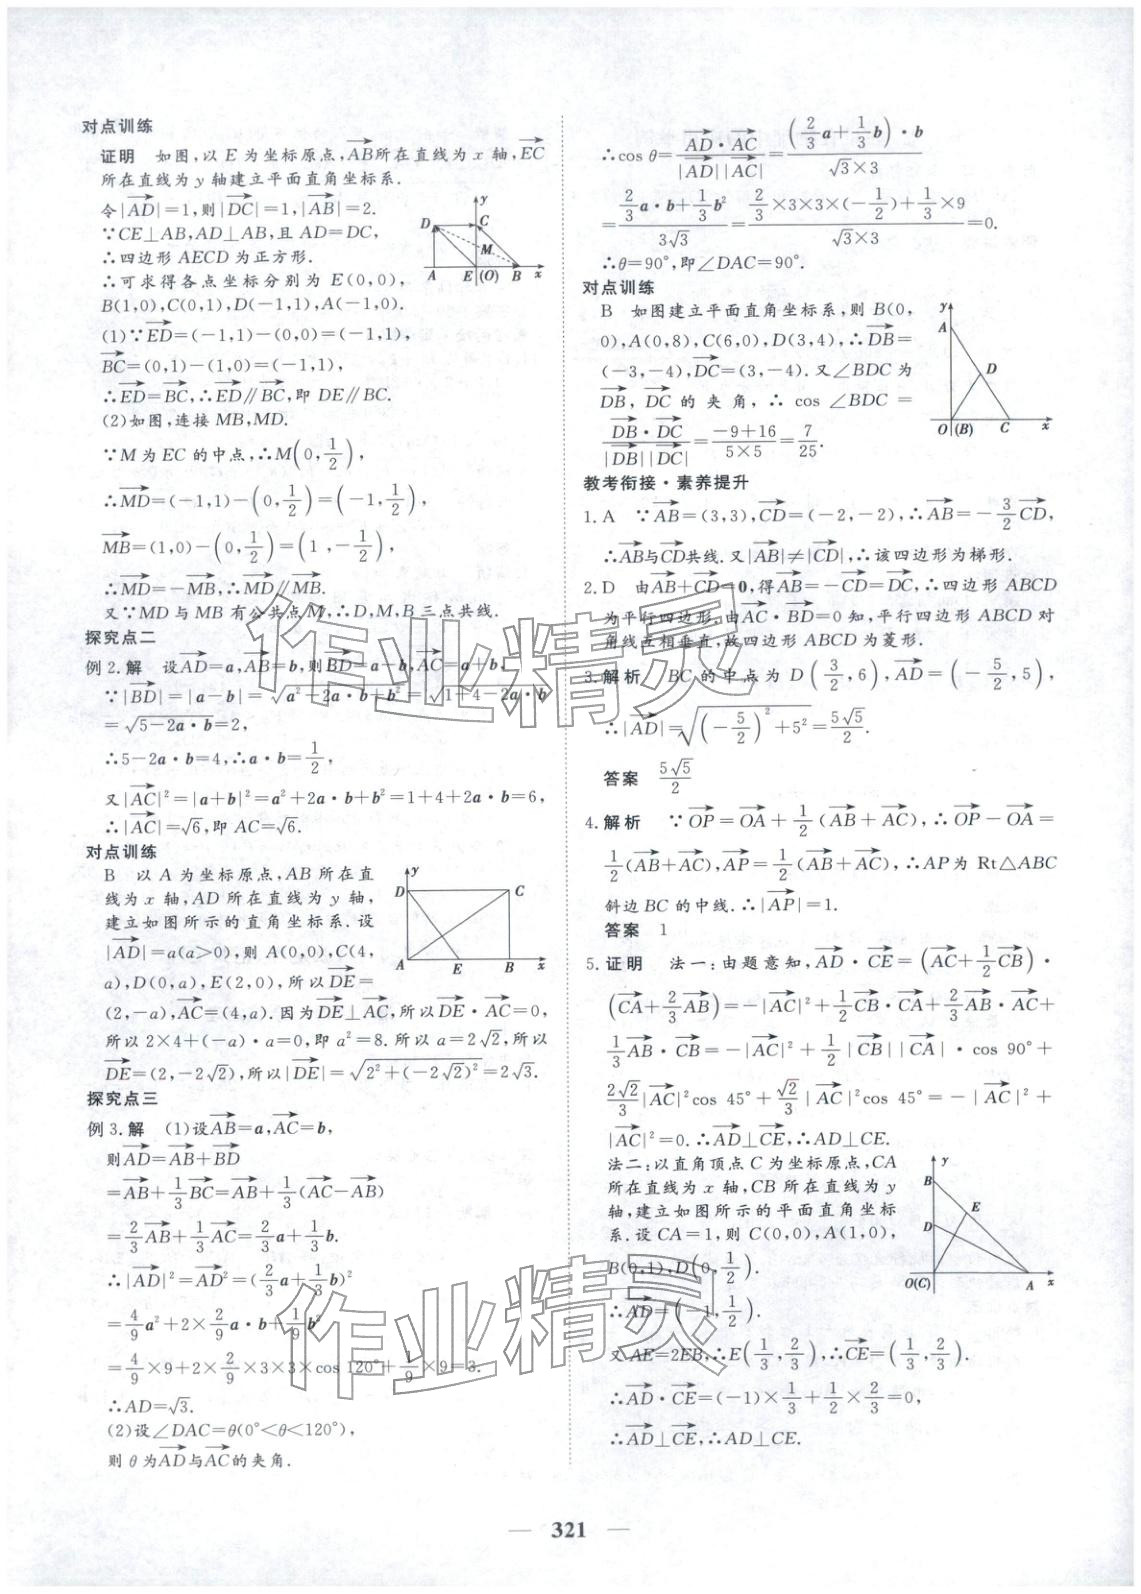 对点训练
证明 如图,以E为坐标原点,\overrightarrow{AB}所在直线为x轴,\overrightarrow{EC}
所在直线为y轴建立平面直角坐标系.
令|\overrightarrow{AD}|=1,则|\overrightarrow{DC}|=1,|\overrightarrow{AB}|=2.
∵CE⊥AB,AD⊥AB,且AD=DC,
∴四边形AECD为正方形.
∴可求得各点坐标分别为E(0,0),
B(1,0),C(0,1),D(-1,1),A(-1,0).
y
D
C
M
A
E
(O)
B
x
(1)∵\overrightarrow{ED}=(-1,1)-(0,0)=(-1,1),
\overrightarrow{BC}=(0,1)-(1,0)=(-1,1),
∴\overrightarrow{ED}=\overrightarrow{BC},∴\overrightarrow{ED}∥\overrightarrow{BC},即DE∥BC.
(2)如图,连接MB,MD.
∵M为EC的中点,∴M(0,\frac{1}{2}),
∴\overrightarrow{MD}=(-1,1)-(0,\frac{1}{2})=(-1,\frac{1}{2}),
\overrightarrow{MB}=(1,0)-(0,\frac{1}{2})=(1,-\frac{1}{2}),
∴\overrightarrow{MD}=-\overrightarrow{MB},∴\overrightarrow{MD}∥\overrightarrow{MB}.
又∵MD与MB有公共点M,∴D,M,B三点共线.
探究点二
例2.解 设\overrightarrow{AD}=a,\overrightarrow{AB}=b,则\overrightarrow{BD}=a-b,\overrightarrow{AC}=a+b,
∵|\overrightarrow{BD}|=|a-b|=\sqrt{a²-2a·b+b²}=\sqrt{1+4-2a·b}
=\sqrt{5-2a·b}=2,
∴5-2a·b=4,∴a·b=\frac{1}{2},
又|\overrightarrow{AC}|²=|a+b|²=a²+2a·b+b²=1+4+2a·b=6,
∴|\overrightarrow{AC}|=\sqrt{6},即AC=\sqrt{6}.
对点训练
B 以A为坐标原点,AB所在直
线为x轴,AD所在直线为y轴,
建立如图所示的直角坐标系.设
|\overrightarrow{AD}|=a(a>0),则A(0,0),C(4,
a),D(0,a),E(2,0),所以\overrightarrow{DE}=
(2,-a),\overrightarrow{AC}=(4,a).因为\overrightarrow{DE}⊥\overrightarrow{AC},所以\overrightarrow{DE}·\overrightarrow{AC}=0,
所以2×4+(-a)·a=0,即a²=8.所以a=2\sqrt{2},所以
\overrightarrow{DE}=(2,-2\sqrt{2}),所以|\overrightarrow{DE}|=\sqrt{2²+(-2\sqrt{2})²}=2\sqrt{3}.
y
D
C
A
E
B
x
探究点三
例3.解 (1)设\overrightarrow{AB}=a,\overrightarrow{AC}=b,
则\overrightarrow{AD}=\overrightarrow{AB}+\overrightarrow{BD}
=\overrightarrow{AB}+\frac{1}{3}\overrightarrow{BC}=\overrightarrow{AB}+\frac{1}{3}(\overrightarrow{AC}-\overrightarrow{AB})
=\frac{2}{3}\overrightarrow{AB}+\frac{1}{3}\overrightarrow{AC}=\frac{2}{3}a+\frac{1}{3}b.
∴|\overrightarrow{AD}|²=\overrightarrow{AD}²=(\frac{2}{3}a+\frac{1}{3}b)²
=\frac{4}{9}a²+2×\frac{2}{9}a·b+\frac{1}{9}b²
=\frac{4}{9}×9+2×\frac{2}{9}×3×3×cos 120°+\frac{1}{9}×9=3.
∴AD=\sqrt{3}.
(2)设∠DAC=θ(0°<θ<120°),
则θ为\overrightarrow{AD}与\overrightarrow{AC}的夹角.
∴cos θ=\frac{\overrightarrow{AD}·\overrightarrow{AC}}{|\overrightarrow{AD}||\overrightarrow{AC}|}=\frac{(\frac{2}{3}a+\frac{1}{3}b)·b}{\sqrt{3}×3}
=\frac{\frac{2}{3}a·b+\frac{1}{3}b²}{3\sqrt{3}}=\frac{\frac{2}{3}×3×3×(-\frac{1}{2})+\frac{1}{3}×9}{\sqrt{3}×3}=0.
∴θ=90°,即∠DAC=90°.
对点训练
B 如图建立平面直角坐标系,则B(0,
0),A(0,8),C(6,0),D(3,4),∴\overrightarrow{DB}=
(-3,-4),\overrightarrow{DC}=(3,-4).又∠BDC为
\overrightarrow{DB},\overrightarrow{DC}的夹角,∴cos ∠BDC=
\frac{\overrightarrow{DB}·\overrightarrow{DC}}{|\overrightarrow{DB}||\overrightarrow{DC}|}=\frac{-9+16}{5×5}=\frac{7}{25}.
y
A
D
O
(B)
C
x
教考衔接·素养提升
1.A ∵\overrightarrow{AB}=(3,3),\overrightarrow{CD}=(-2,-2),∴\overrightarrow{AB}=-\frac{3}{2}\overrightarrow{CD},
∴\overrightarrow{AB}与\overrightarrow{CD}共线.又|\overrightarrow{AB}|≠|\overrightarrow{CD}|,∴该四边形为梯形.
2.D 由\overrightarrow{AB}+\overrightarrow{CD}=0,得\overrightarrow{AB}=-\overrightarrow{CD}=\overrightarrow{DC},∴四边形ABCD
为平行四边形,由\overrightarrow{AC}·\overrightarrow{BD}=0知,平行四边形ABCD对
角线互相垂直,故四边形ABCD为菱形.
3.解析 BC的中点为D(\frac{3}{2},6),\overrightarrow{AD}=(-\frac{5}{2},5),
∴|\overrightarrow{AD}|=\sqrt{(-\frac{5}{2})²+5²}=\frac{5\sqrt{5}}{2}.
答案 \frac{5\sqrt{5}}{2}
4.解析 ∵\overrightarrow{OP}=\overrightarrow{OA}+\frac{1}{2}(\overrightarrow{AB}+\overrightarrow{AC}),∴\overrightarrow{OP}-\overrightarrow{OA}=
\frac{1}{2}(\overrightarrow{AB}+\overrightarrow{AC}),\overrightarrow{AP}=\frac{1}{2}(\overrightarrow{AB}+\overrightarrow{AC}),∴AP为Rt△ABC
斜边BC的中线.∴|\overrightarrow{AP}|=1.
答案 1
5.证明 法一:由题意知,\overrightarrow{AD}·\overrightarrow{CE}=(\overrightarrow{AC}+\frac{1}{2}\overrightarrow{CB})·
(\overrightarrow{CA}+\frac{2}{3}\overrightarrow{AB})=-|\overrightarrow{AC}|²+\frac{1}{2}\overrightarrow{CB}·\overrightarrow{CA}+\frac{2}{3}\overrightarrow{AB}·\overrightarrow{AC}+
\frac{1}{3}\overrightarrow{AB}·\overrightarrow{CB}=-|\overrightarrow{AC}|²+\frac{1}{2}|\overrightarrow{CB}||\overrightarrow{CA}|·cos 90°+
\frac{2\sqrt{2}}{3}|\overrightarrow{AC}|²cos 45°+\frac{\sqrt{2}}{3}|\overrightarrow{AC}|²cos 45°=-|\overrightarrow{AC}|²+
|\overrightarrow{AC}|²=0.∴\overrightarrow{AD}⊥\overrightarrow{CE},∴AD⊥CE.
法二:以直角顶点C为坐标原点,CA
所在直线为x轴,CB所在直线为y
轴,建立如图所示的平面直角坐标
系.设CA=1,则C(0,0),A(1,0),
B(0,1),D(0,\frac{1}{2}).
∴\overrightarrow{AD}=(-1,\frac{1}{2}).
y
B
E
D
O(C)
A
x
又AE=2EB,∴E(\frac{1}{3},\frac{2}{3}),∴\overrightarrow{CE}=(\frac{1}{3},\frac{2}{3}).
∴\overrightarrow{AD}·\overrightarrow{CE}=(-1)×\frac{1}{3}+\frac{1}{2}×\frac{2}{3}=0,
∴\overrightarrow{AD}⊥\overrightarrow{CE},∴AD⊥CE.
作业精灵
作业精灵
— 321 —